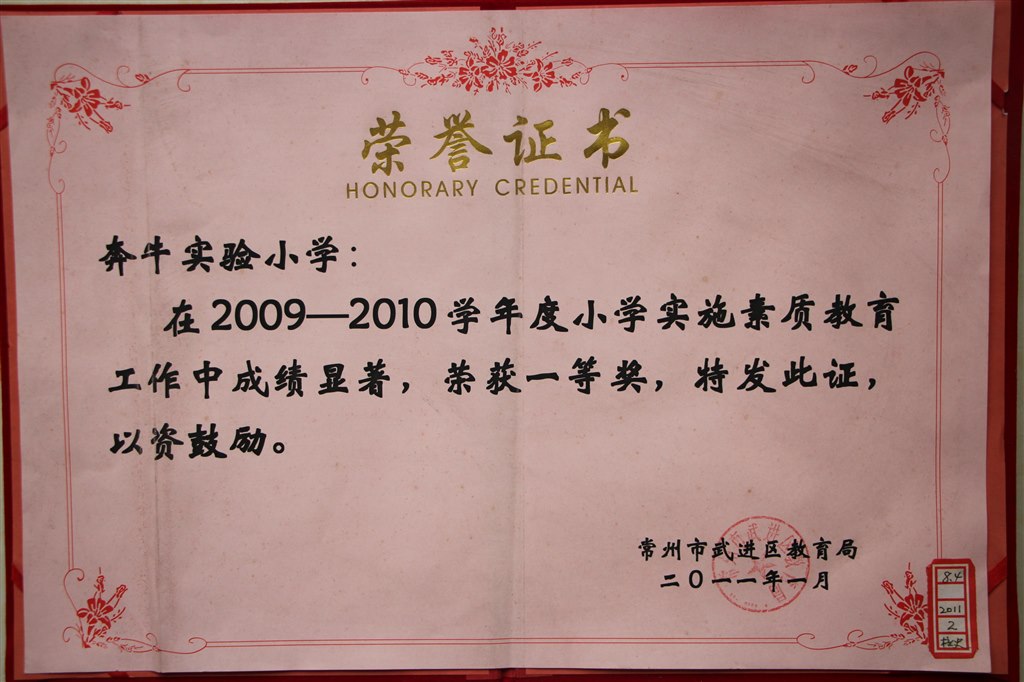 荣誉证书
HONORARY CREDENTIAL
奔牛实验小学：
在2009—2010学年度小学实施素质教育
工作中成绩显著，荣获一等奖，特发此证，
以资鼓励。
常州市武进区教育局
二〇一一年一月
84
2011
2